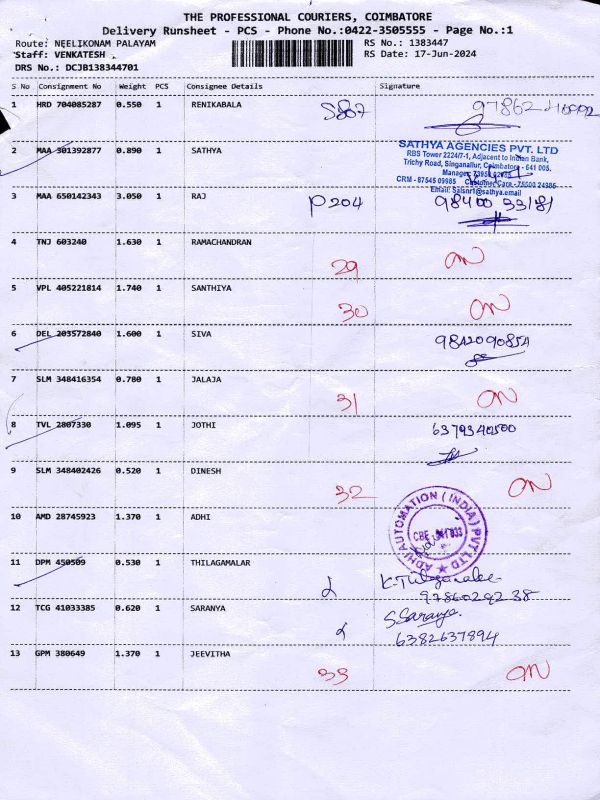 THE PROFESSIONAL COURIERS, COIMBATORE
Delivery Runsheet - PCS - Phone No.:0422-3505555 - Page No.:1
Route: NEELIKONAM PALAYAM RS No.: 1383447
Staff: VENKATESH RS Date: 17-Jun-2024
DRS No.: DCJB138344701
S No Consignment No Weight PCS Consignee Details Signature
1 HRD 704085287 0.550 1 RENIKABALA S807
2 MAA 301392877 0.890 1 SATHYA
SATHYA AGENCIES PVT. LTD
RBS Tower 2224/7-1, Adjacent to Indian Bank,
Trichy Road, Singanallur, Coimbatore - 641 005.
Manager
CRM - 87545 09985 Customer Care - 75500 24985
Email: Salsnr1@sathya.email
3 MAA 650142343 3.050 1 RAJ P204 98400 33181
4 TNJ 603240 1.630 1 RAMACHANDRAN 29 ON
5 VPL 405221814 1.740 1 SANTHIYA 30 ON
6 DEL 203572840 1.600 1 SIVA 9842090854
7 SLM 348416354 0.780 1 JALAJA 31 ON
8 TVL 2807330 1.095 1 JOTHI 6379340500
9 SLM 348402426 0.520 1 DINESH 32 ON
10 AMD 28745923 1.370 1 ADHI
ADHI AUTOMATION (INDIA) PVT LTD
CBE
11 DPM 450509 0.530 1 THILAGAMALAR
9786029238
12 TCG 41033385 0.620 1 SARANYA S.Saranya
6382637894
13 GPM 380649 1.370 1 JEEVITHA 33 ON